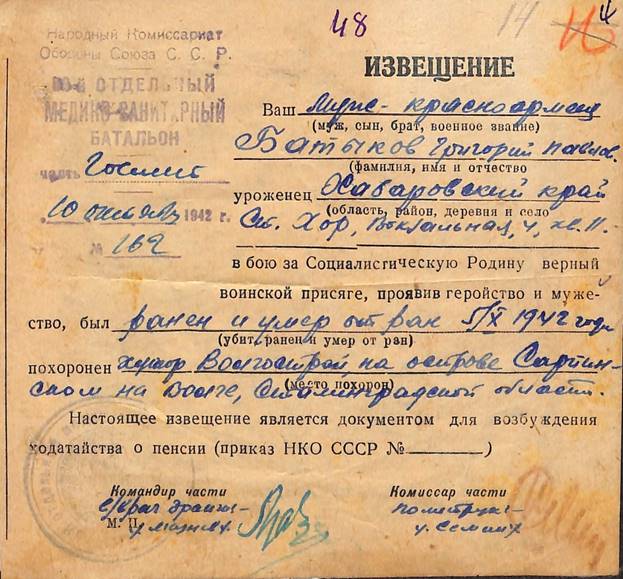 48
14
4
Народный Комиссариат
Обороны Союза С. С. Р.
ОТДЕЛЬНЫЙ
МЕДИКО-САНИТАРНЫЙ
БАТАЛЬОН
часть Госпит
10 октября 1942 г.
№ 162
ИЗВЕЩЕНИЕ
Ваш муж - красноармеец
(муж, сын, брат, военное звание)
Батыков Григорий Павлов.
(фамилия, имя и отчество
уроженец Хабаровский край
(область, район, деревня и село
ст. Хор, Вокзальная, 4, кв. 11.
в бою за Социалистическую Родину верный
воинской присяге, проявив геройство и муже-
ство, был ранен и умер от ран 5/X 1942 года
(убит, ранен и умер от ран)
похоронен хутор Волгострой на острове Сарпин-
ском на Волге, Сталинградской области.
(место похорон)
Настоящее извещение является документом для возбуждения
ходатайства о пенсии (приказ НКО СССР № )
Командир части
Комиссар части
М. П.
политрук